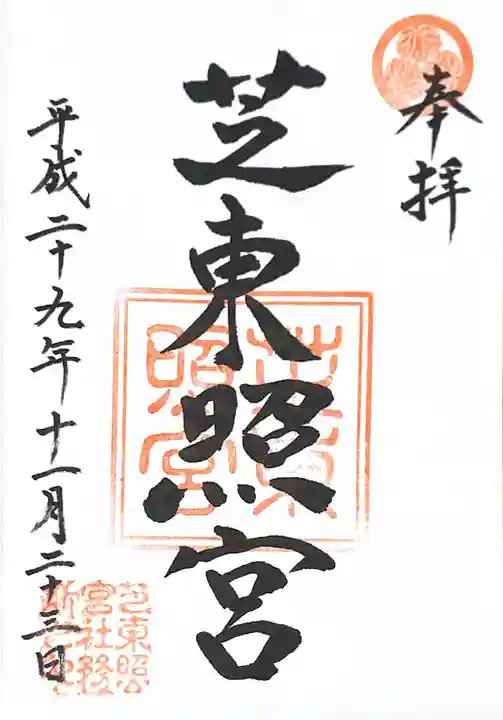 奉拝
芝東照宮
平成二十九年十一月二十三日
芝東照宮
芝東照
宮社務
所之印